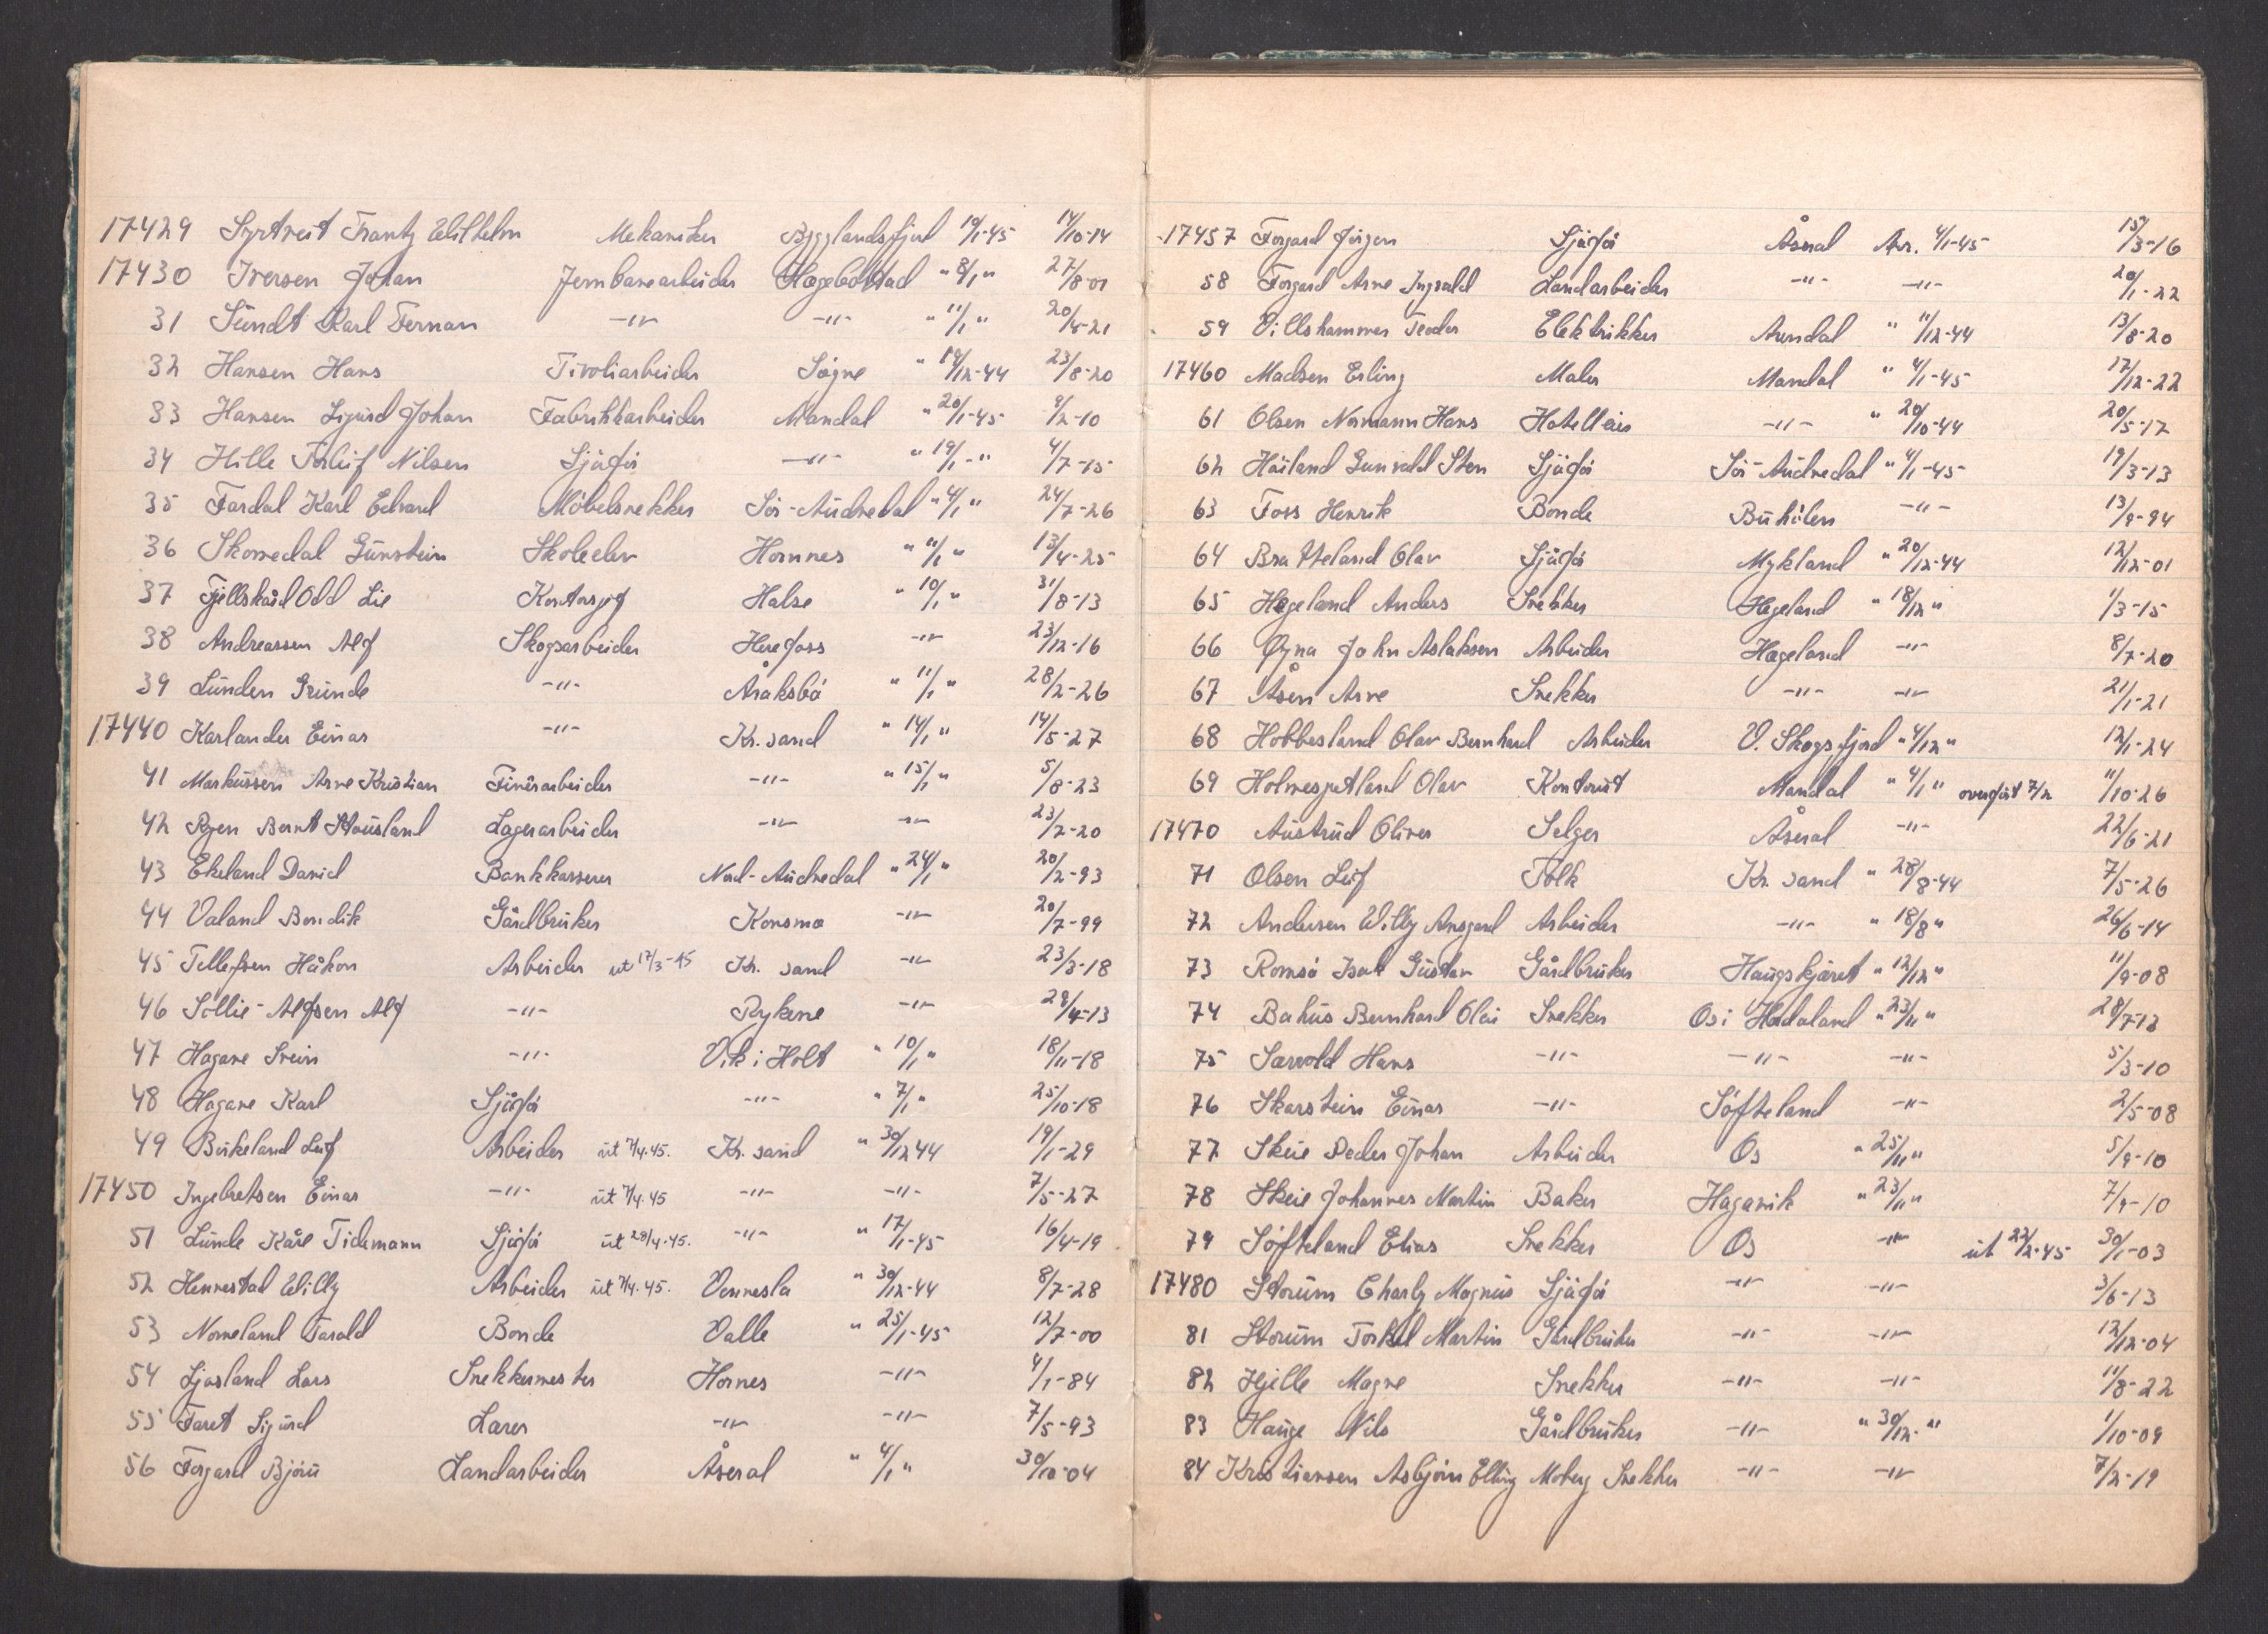 17429 Syrtveit Frantz Wilhelm Mekaniker Bygglandsfjord 19/1-45 14/10-14
17430 Iversen Johan Jernbanearbeider Hægebostad " 8/1 " 27/8-01
31 Sundt Karl Fernan -"- -"- " 11/1 " 20/4-21
32 Hansen Hans Tivoliarbeider Søgne " 19/12-44 23/8-20
33 Hansen Sigurd Johan Fabrikkarbeider Mandal " 20/1-45 9/2-10
34 Hille Torleif Nilsen Sjåfør -"- " 19/1-" 4/7-15
35 Fardal Karl Edvard Møbelsnekker Sör-Audnedal " 4/1 " 24/7-26
36 Skomedal Gunstein Skoleelev Hornnes " 11/1 " 13/4-25
37 Fjellskård Odd Lie Kontorsjef Halse " 10/1 " 31/8-13
38 Andreassen Alf Skogsarbeider Herefoss -"- 23/12-16
39 Lunden Grunde -"- Åraksbø " 11/1 " 28/2-26
17440 Karlander Einar -"- Kr. sand " 14/1 " 14/5-27
41 Markussen Arne Kristian Finérarbeider -"- " 15/1 " 5/8-23
42 Ryen Bernt Stousland Lagerarbeider -"- -"- 23/7-20
43 Ekeland David Bankkasserer Nord-Audnedal " 24/1 " 20/2-93
44 Valand Bendik Gårdbruker Konsmo -"- 20/7-99
45 Tellefsen Håkon Arbeider ut 17/3-45 Kr. sand -"- 23/3-18
46 Sollie-Alfsen Alf -"- Rykene -"- 29/4-13
47 Hagane Svein -"- Vik i Holt " 10/1 " 18/11-18
48 Hagane Karl Sjåfør -"- " 7/1 " 25/10-18
49 Birkeland Leif Arbeider ut 7/4.45. Kr. sand " 30/12 44 19/1-29
17450 Ingebretsen Einar -"- ut 7/4.45 -"- -"- 7/5-27
51 Lunde Kåre Tidemann Sjåfør ut 28/4.45. -"- " 17/1-45 16/4-19
52 Hennestad Willy Arbeider ut 7/4.45. Vennesla " 30/12-44 8/7-28
53 Nomeland Tarald Bonde Valle " 25/1-45 12/7-00
54 Ljosland Lars Snekkermester Hornes -"- 4/1-84
55 Faret Sigurd Lærer -"- -"- 7/5-93
56 Forgard Bjørn Landarbeider Åseral " 4/1 " 30/10-04
17457 Forgard Jörgen Sjåför Åseral Arr. 4/1-45 15/3-16
58 Forgard Arne Ingvald Landarbeider -"- -"- 20/1-22
59 Dillshammer Teodor Elektrikker Arendal " 11/12-44 13/8-20
17460 Madsen Erling Maler Mandal " 4/1-45 17/12-22
61 Olsen Normann Hans Hotelleier -"- " 20/10-44 20/5-17
62 Håiland Gunvald Sten Sjåfør Sör-Audnedal " 4/1-45 19/3-13
63 Foss Henrik Bonde Buhölen -"- 13/9-94
64 Bratteland Olav Sjåför Mykland " 20/12-44 12/12-01
65 Hægeland Anders Snekker Hægeland " 18/12 " 1/3-15
66 Øyna John Aslaksen Arbeider Hægeland -"- 8/7-20
67 Åsen Arne Snekker -"- -"- 21/1-21
68 Hobbesland Olav Bernhard Arbeider V. Skogsfjord " 4/12 " 12/1-24
69 Holmesjutland Olav Kontorist Mandal " 4/1 " overfört 7/2 11/10-26
17470 Austrud Oliver Selger Åseral -"- 22/6-21
71 Olsen Leif Tolk Kr. sand " 28/8-44 7/5-26
72 Andersen Willy Ansgard Arbeider -"- " 18/8 " 26/6-14
73 Romsö Isak Gustav Gårdbruker Haugskjæret " 12/12 " 11/9-08
74 Bahus Bernhard Olai Snekker Os i Hordaland " 23/11 " 28/7-13
75 Særvold Hans -"- -"- -"- 5/3-10
76 Skarstein Einar -"- Söfteland -"- 2/5-08
77 Skeie Peder Johan Arbeider Os " 25/11 " 5/9-10
78 Skeie Johannes Martin Baker Hagavik " 23/11 " 7/9-10
79 Söfteland Elias Snekker Os -"- ut 22/2-45 30/1-03
17480 Storum Charly Magnus Sjåför -"- -"- 3/6-13
81 Storum Torkel Martin Gårdbruker -"- -"- 12/12-04
82 Hjelle Magne Snekker -"- -"- 11/8-22
83 Hauge Nils Gårdbruker -"- " 30/12-" 1/10-09
84 Kristiansen Asbjörn Elling Moberg Snekker -"- -"- 7/2-19